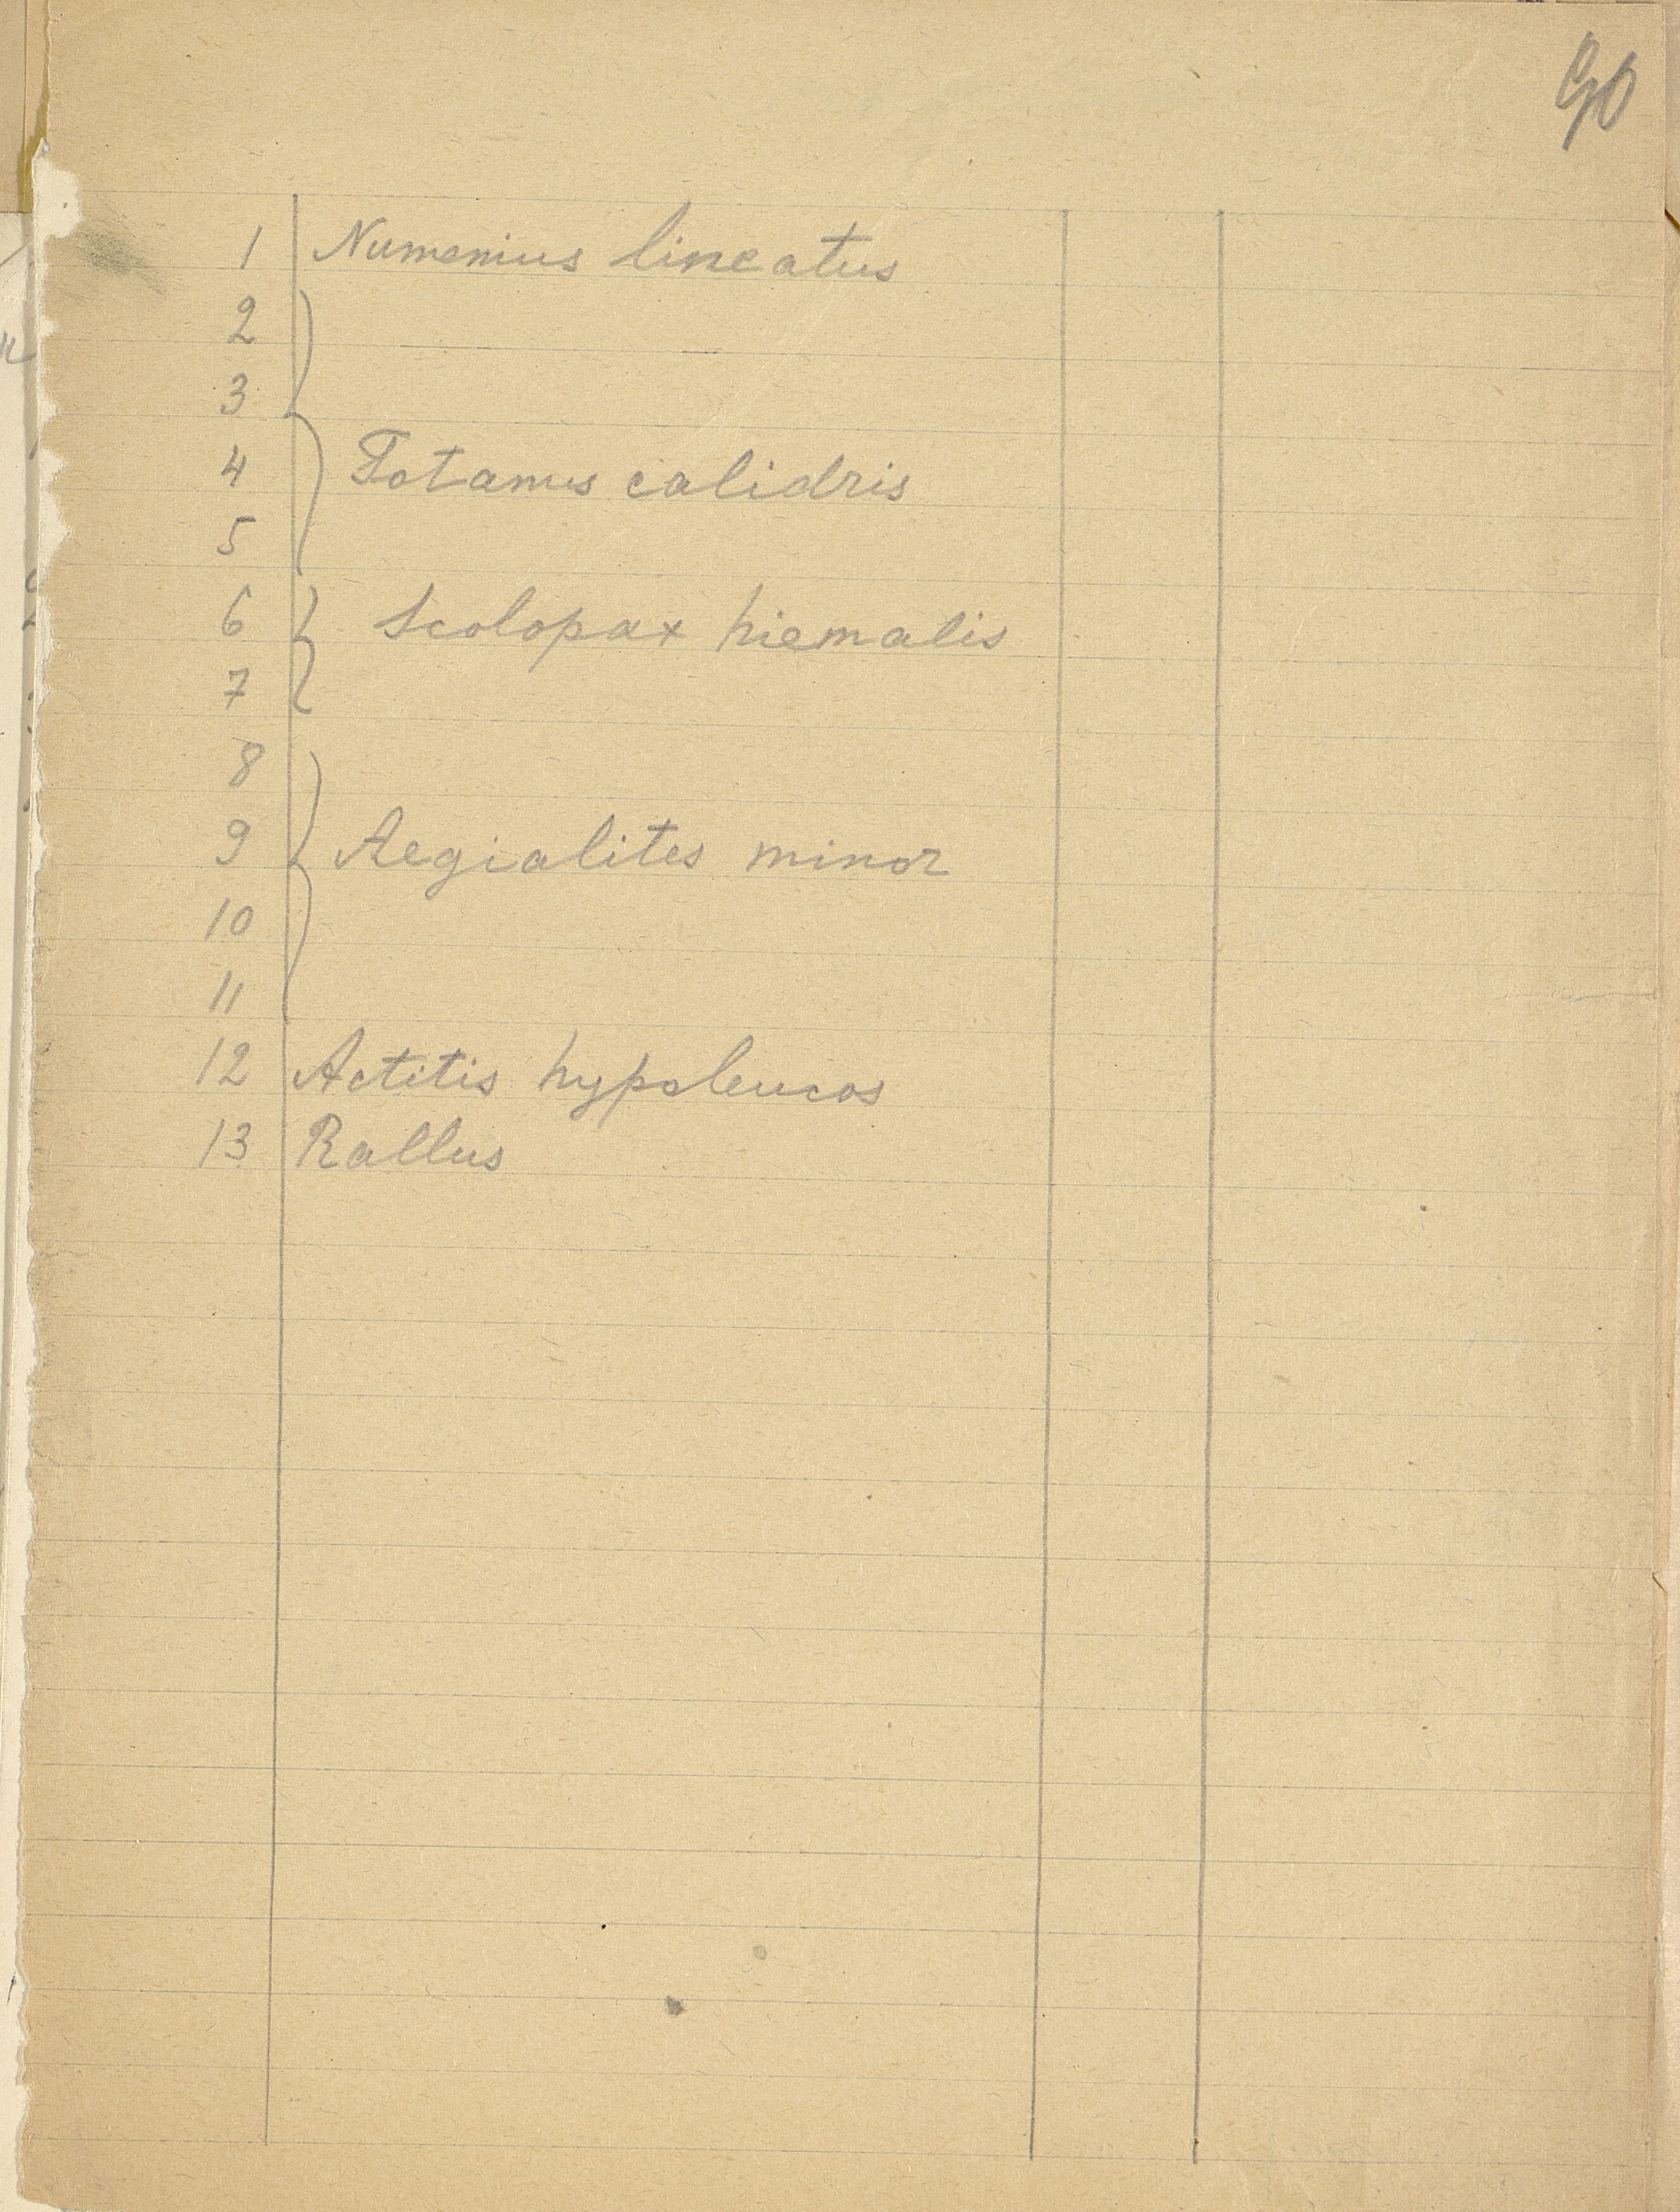 90
1 Numenius lineatus
2
3
4 Totanus calidris
5
6 Scolopax hiemalis
7
8
9 Aegialites minor
10
11
12 Actitis hypoleucos
13 Rallus